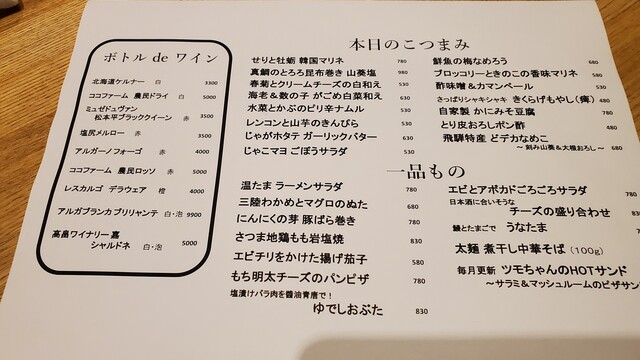 ボトル de ワイン
北海道ケルナー 白 3300
ココファーム 農民ドライ 白 5000
ミュゼドゥヴァン
松本平ブラッククイーン 赤 3500
塩尻メルロー 赤 3500
アルガーノフォーゴ 赤 4000
ココファーム 農民ロッソ 赤 5000
レスカルゴ デラウェア 橙 4000
アルガブランカ ブリリャンテ 白・泡 9900
高畠ワイナリー 嘉
シャルドネ 白・泡 5000
本日のこつまみ
せりと牡蛎 韓国マリネ 780
真鯛のとろろ昆布巻き 山葵塩 980
春菊とクリームチーズの白和え 530
海老&数の子 がごめ白菜和え 630
水菜とかぶのピリ辛ナムル 530
レンコンと山芋のきんぴら 530
じゃがホタテ ガーリックバター 630
じゃこマヨ ごぼうサラダ 530
鮮魚の梅なめろう 680
ブロッコリーときのこの香味マリネ 580
酢味噌&カマンベール 530
さっぱりシャキシャキ きくらげもやし(痺) 480
自家製 かにみそ豆腐 780
とり皮おろしポン酢 480
飛騨特産 どデカなめこ
~ 刻み山葵&大根おろし~ 680
一品もの
温たま ラーメンサラダ 780
三陸わかめとマグロのぬた 680
にんにくの芽 豚ばら巻き 780
さつま地鶏もも岩塩焼 830
エビチリをかけた揚げ茄子 580
もち明太チーズのパンピザ 780
塩漬けバラ肉を醤油青唐で!
ゆでしおぶた 830
エビとアボカドごろごろサラダ 780
日本酒に合いそうな
チーズの盛り合わせ
鰻とたまごで うなたま
太麺 煮干し中華そば (100g)
毎月更新 ツモちゃんのHOTサンド
~サラミ&マッシュルームのピザサン